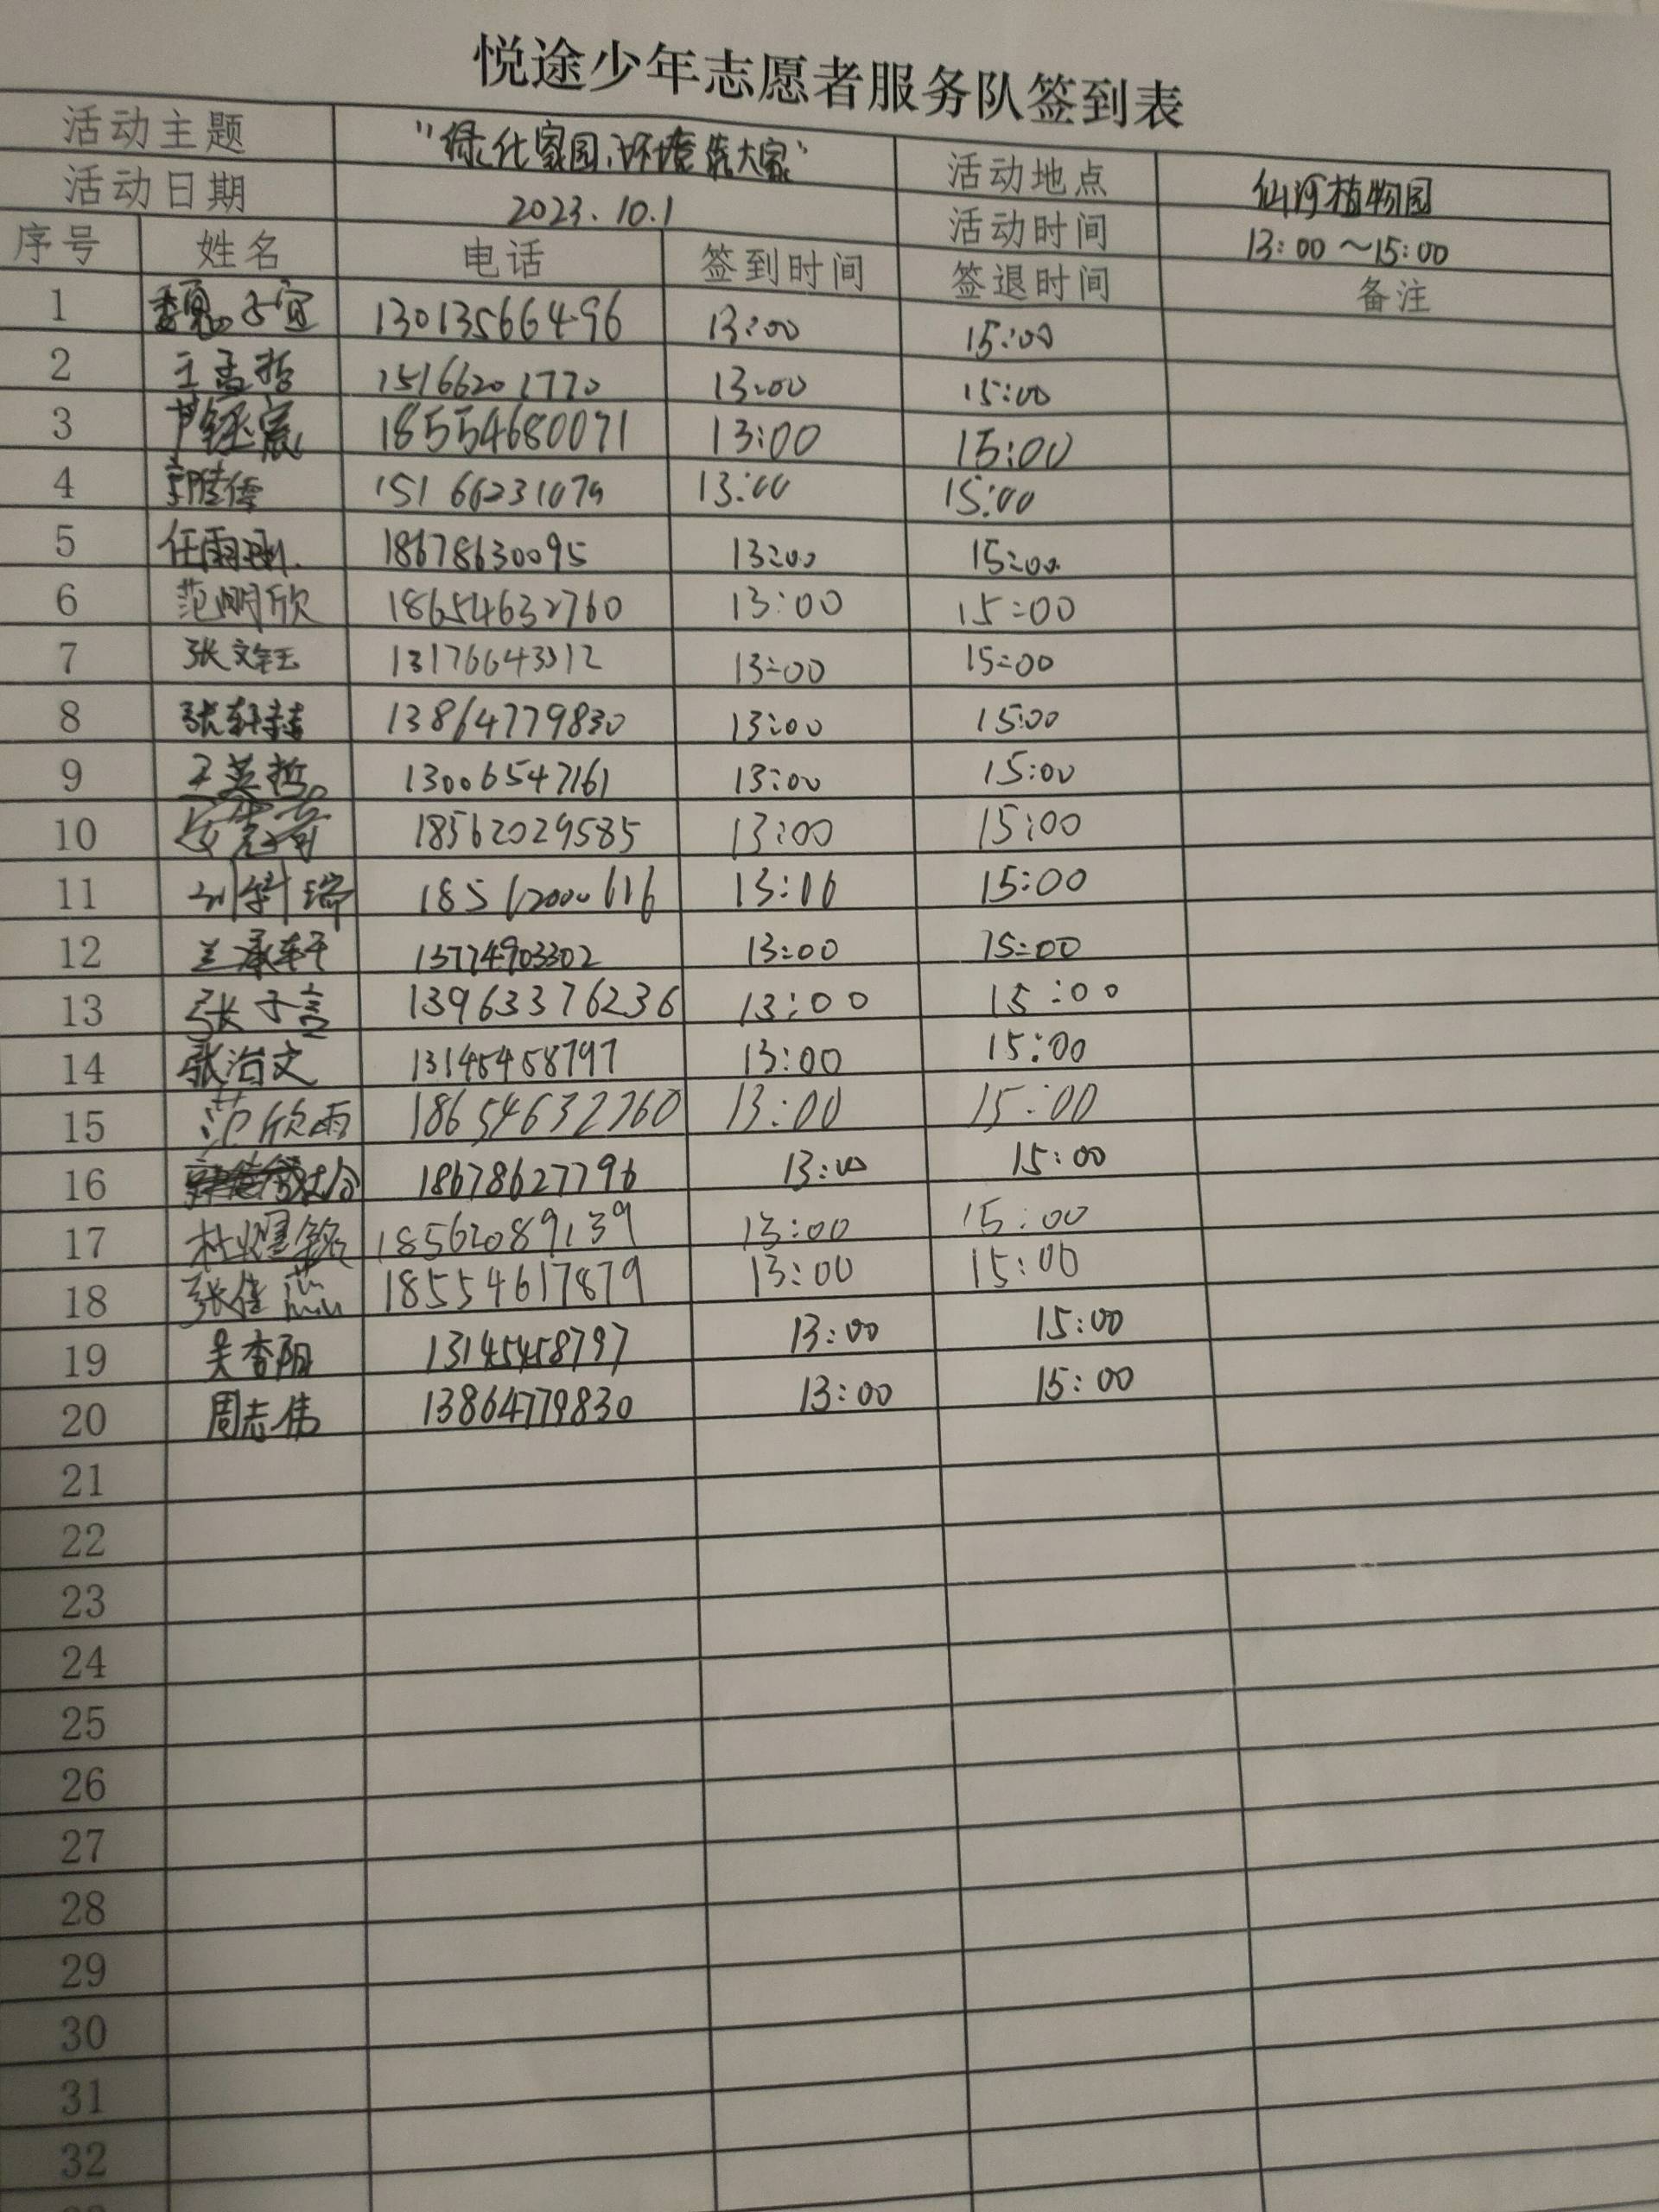 悦途少年志愿者服务队签到表
活动主题 "绿化家园,环境靠大家" 活动地点 仙河植物园
活动日期 2023.10.1 活动时间 13:00~15:00
序号 姓名 电话 签到时间 签退时间 备注
1 子宜 13013566496 13:00 15:00
2 王孟哲 15166201770 13:00 15:00
3 18554680071 13:00 15:00
4 15166231079 13:00 15:00
5 任雨 18678630095 13:00 15:00
6 范明欣 18654632760 13:00 15:00
7 张文钰 13176643312 13:00 15:00
8 张轩赫 13864779830 13:00 15:00
9 王英哲 13006547161 13:00 15:00
10 18562029585 13:00 15:00
11 瑞 13:00 15:00
12 兰承轩 13774903302 13:00 15:00
13 张子言 13963376236 13:00 15:00
14 张治文 13145458797 13:00 15:00
15 范欣雨 18654632760 13:00 15:00
16 18678627796 13:00 15:00
17 杜耀铭 18562089139 13:00 15:00
18 张佳 18554617879 13:00 15:00
19 吴杳阳 13145458797 13:00 15:00
20 周志伟 13864779830 13:00 15:00
21
22
23
24
25
26
27
28
29
30
31
32